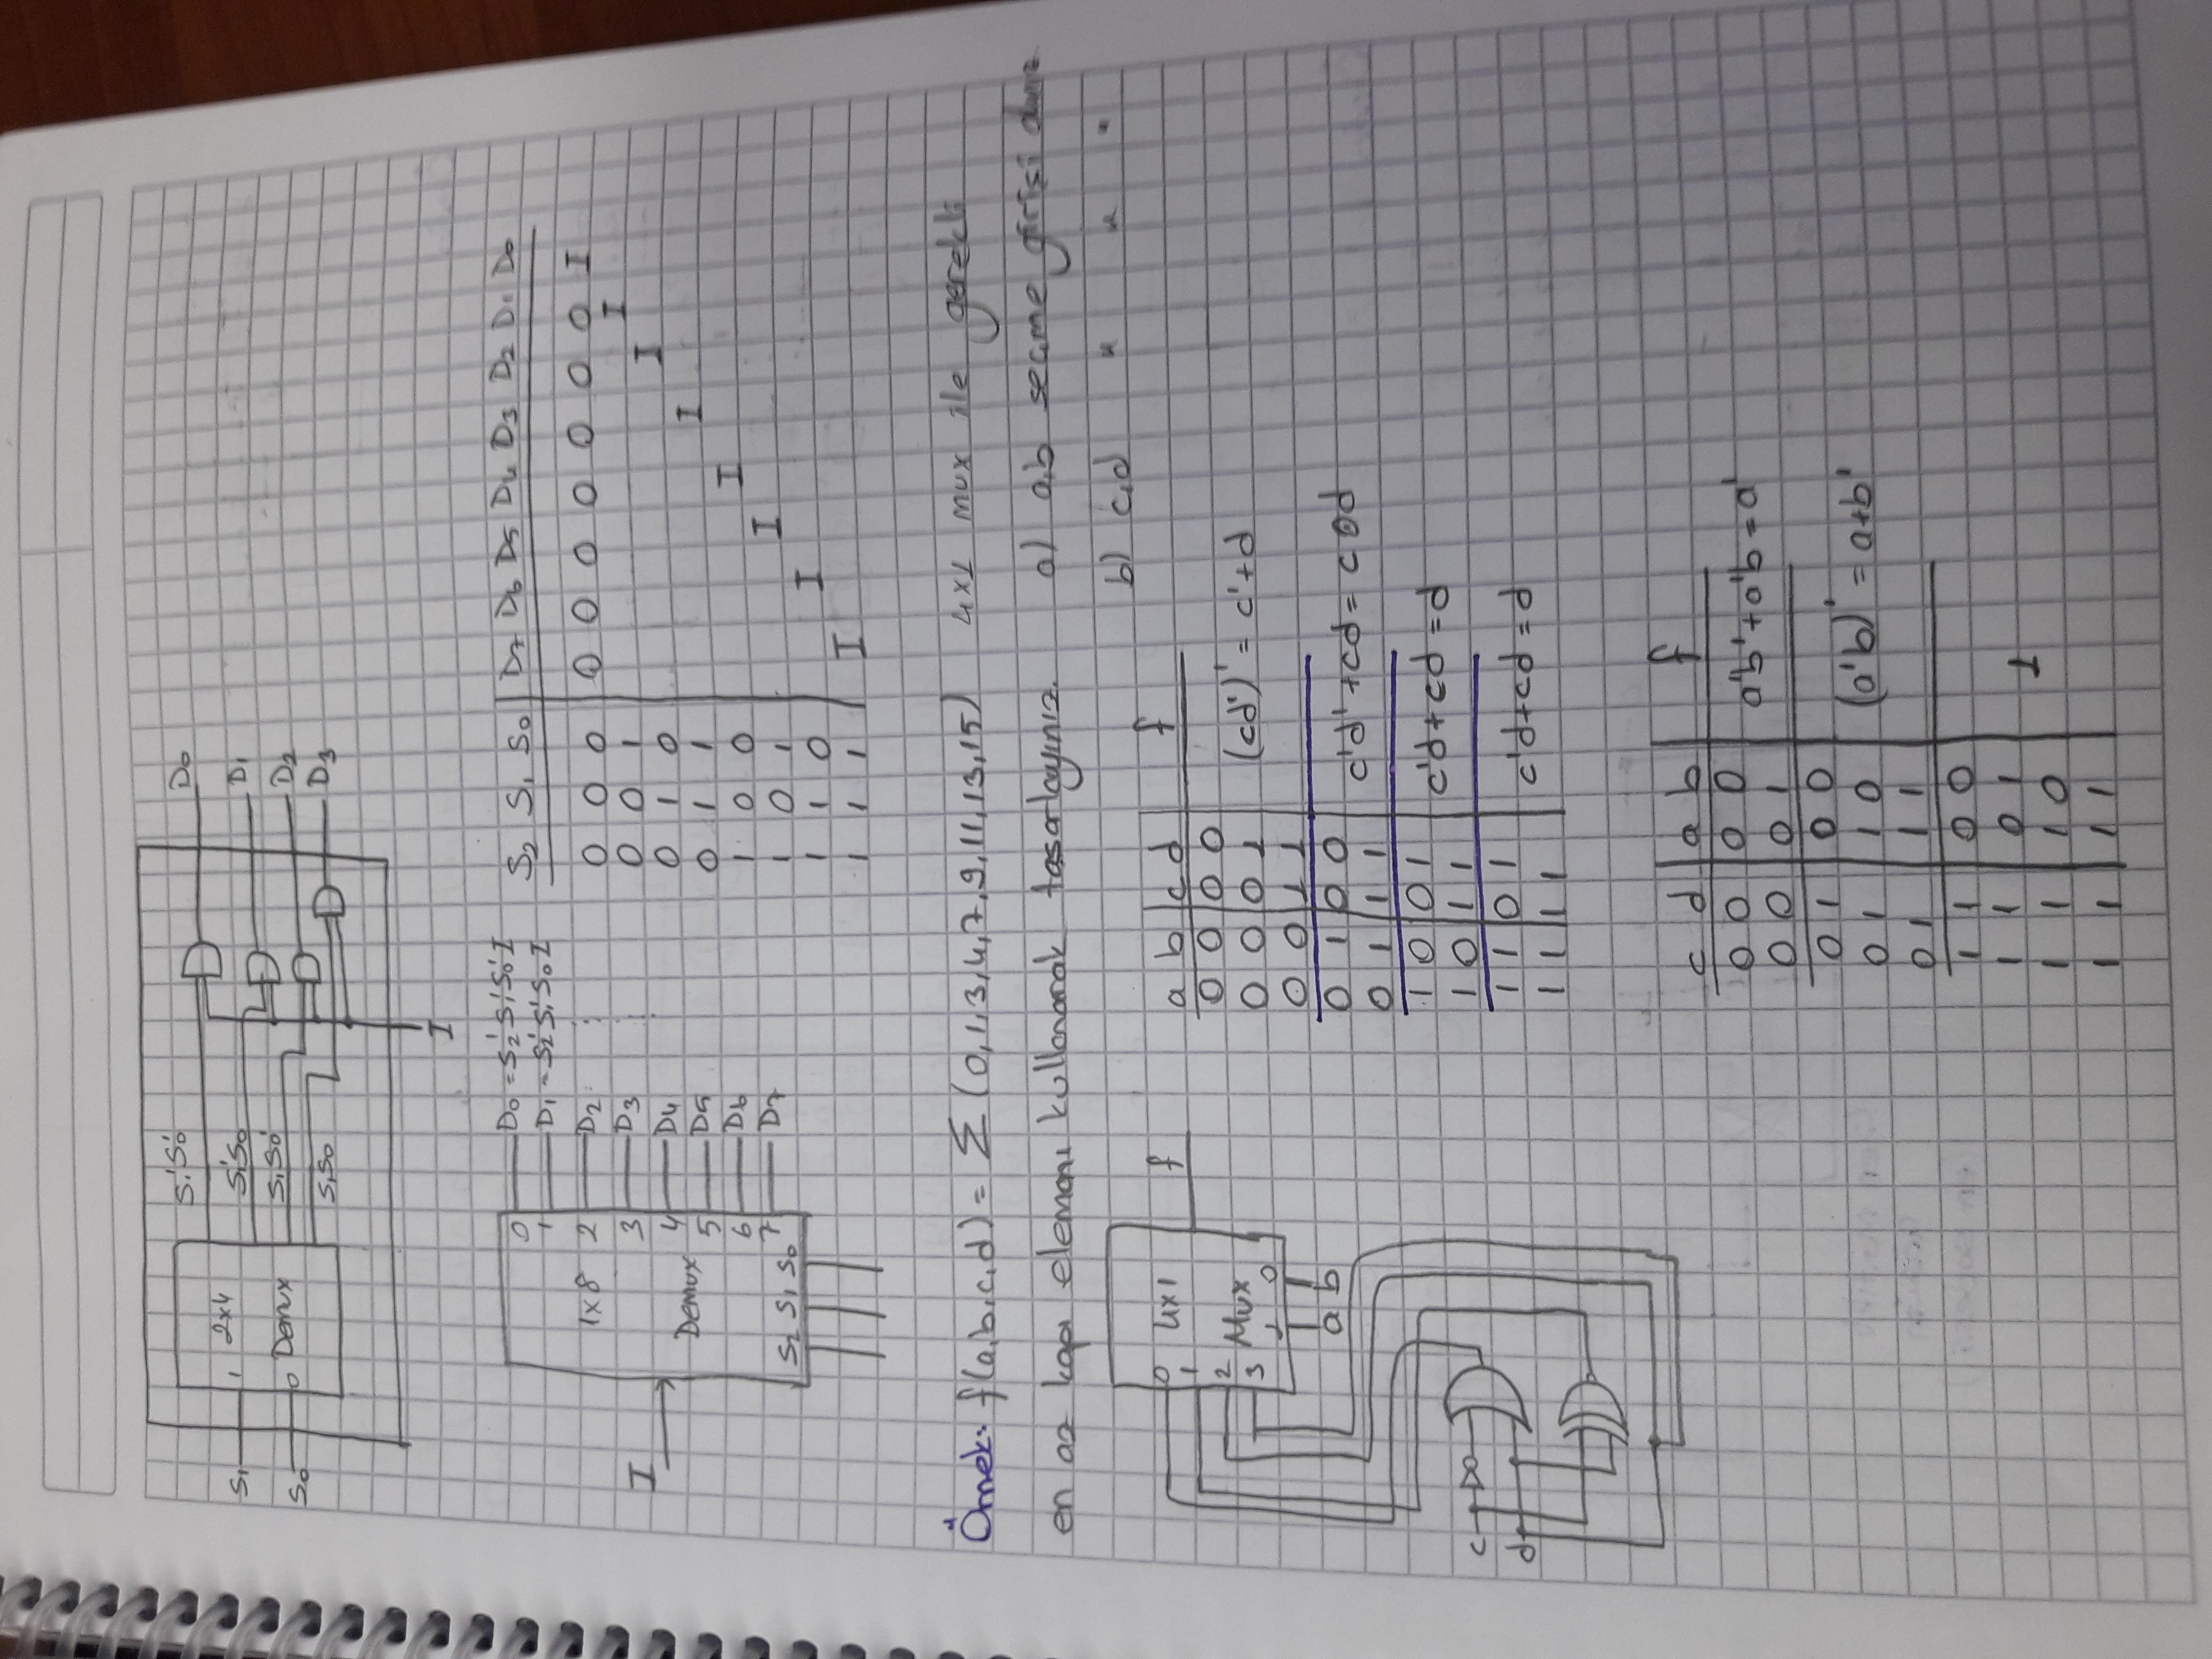 S₁'S₀' D₀
S₁ 1 2x4 S₁'S₀ D₁
S₁S₀' D₂
S₀ 0 Demux
S₁S₀ D₃
I
0 D₀ = S₂'S₁'S₀'I
1 D₁ = S₂'S₁'S₀I
1x8 2 D₂
3 D₃
I 4 D₄
Demux 5 D₅
6 D₆
7 D₇
S₂ S₁ S₀
S₂ S₁ S₀ D₇ D₆ D₅ D₄ D₃ D₂ D₁ D₀
0 0 0 0 0 0 0 0 0 0 I
0 0 1 I
0 1 0 I
0 1 1 I
1 0 0 I
1 0 1 I
1 1 0 I
1 1 1 I
Örnek: f(a,b,c,d) = Σ (0,1,3,4,7,9,11,13,15) 4x1 mux ile gerekli
en az kapı elemanı kullanarak tasarlayınız. a) a,b seçme girişi
b) c,d " " "
0 4x1 f
1
2 Mux
3
1 0
a b
c
d
a b c d f
0 0 0 0
0 0 0 1 (cd')' = c'+d
0 0 1 1
0 1 0 0 c'd'+cd = c⊙d
0 1 1 1
1 0 0 1 c'd+cd = d
1 0 1 1
1 1 0 1 c'd+cd = d
1 1 1 1
c d a b f
0 0 0 0 a'b'+a'b = a'
0 0 0 1
0 1 0 0
0 1 1 0 (a'b)' = a+b'
0 1 1 1
1 1 0 0
1 1 0 1 1
1 1 1 0
1 1 1 1